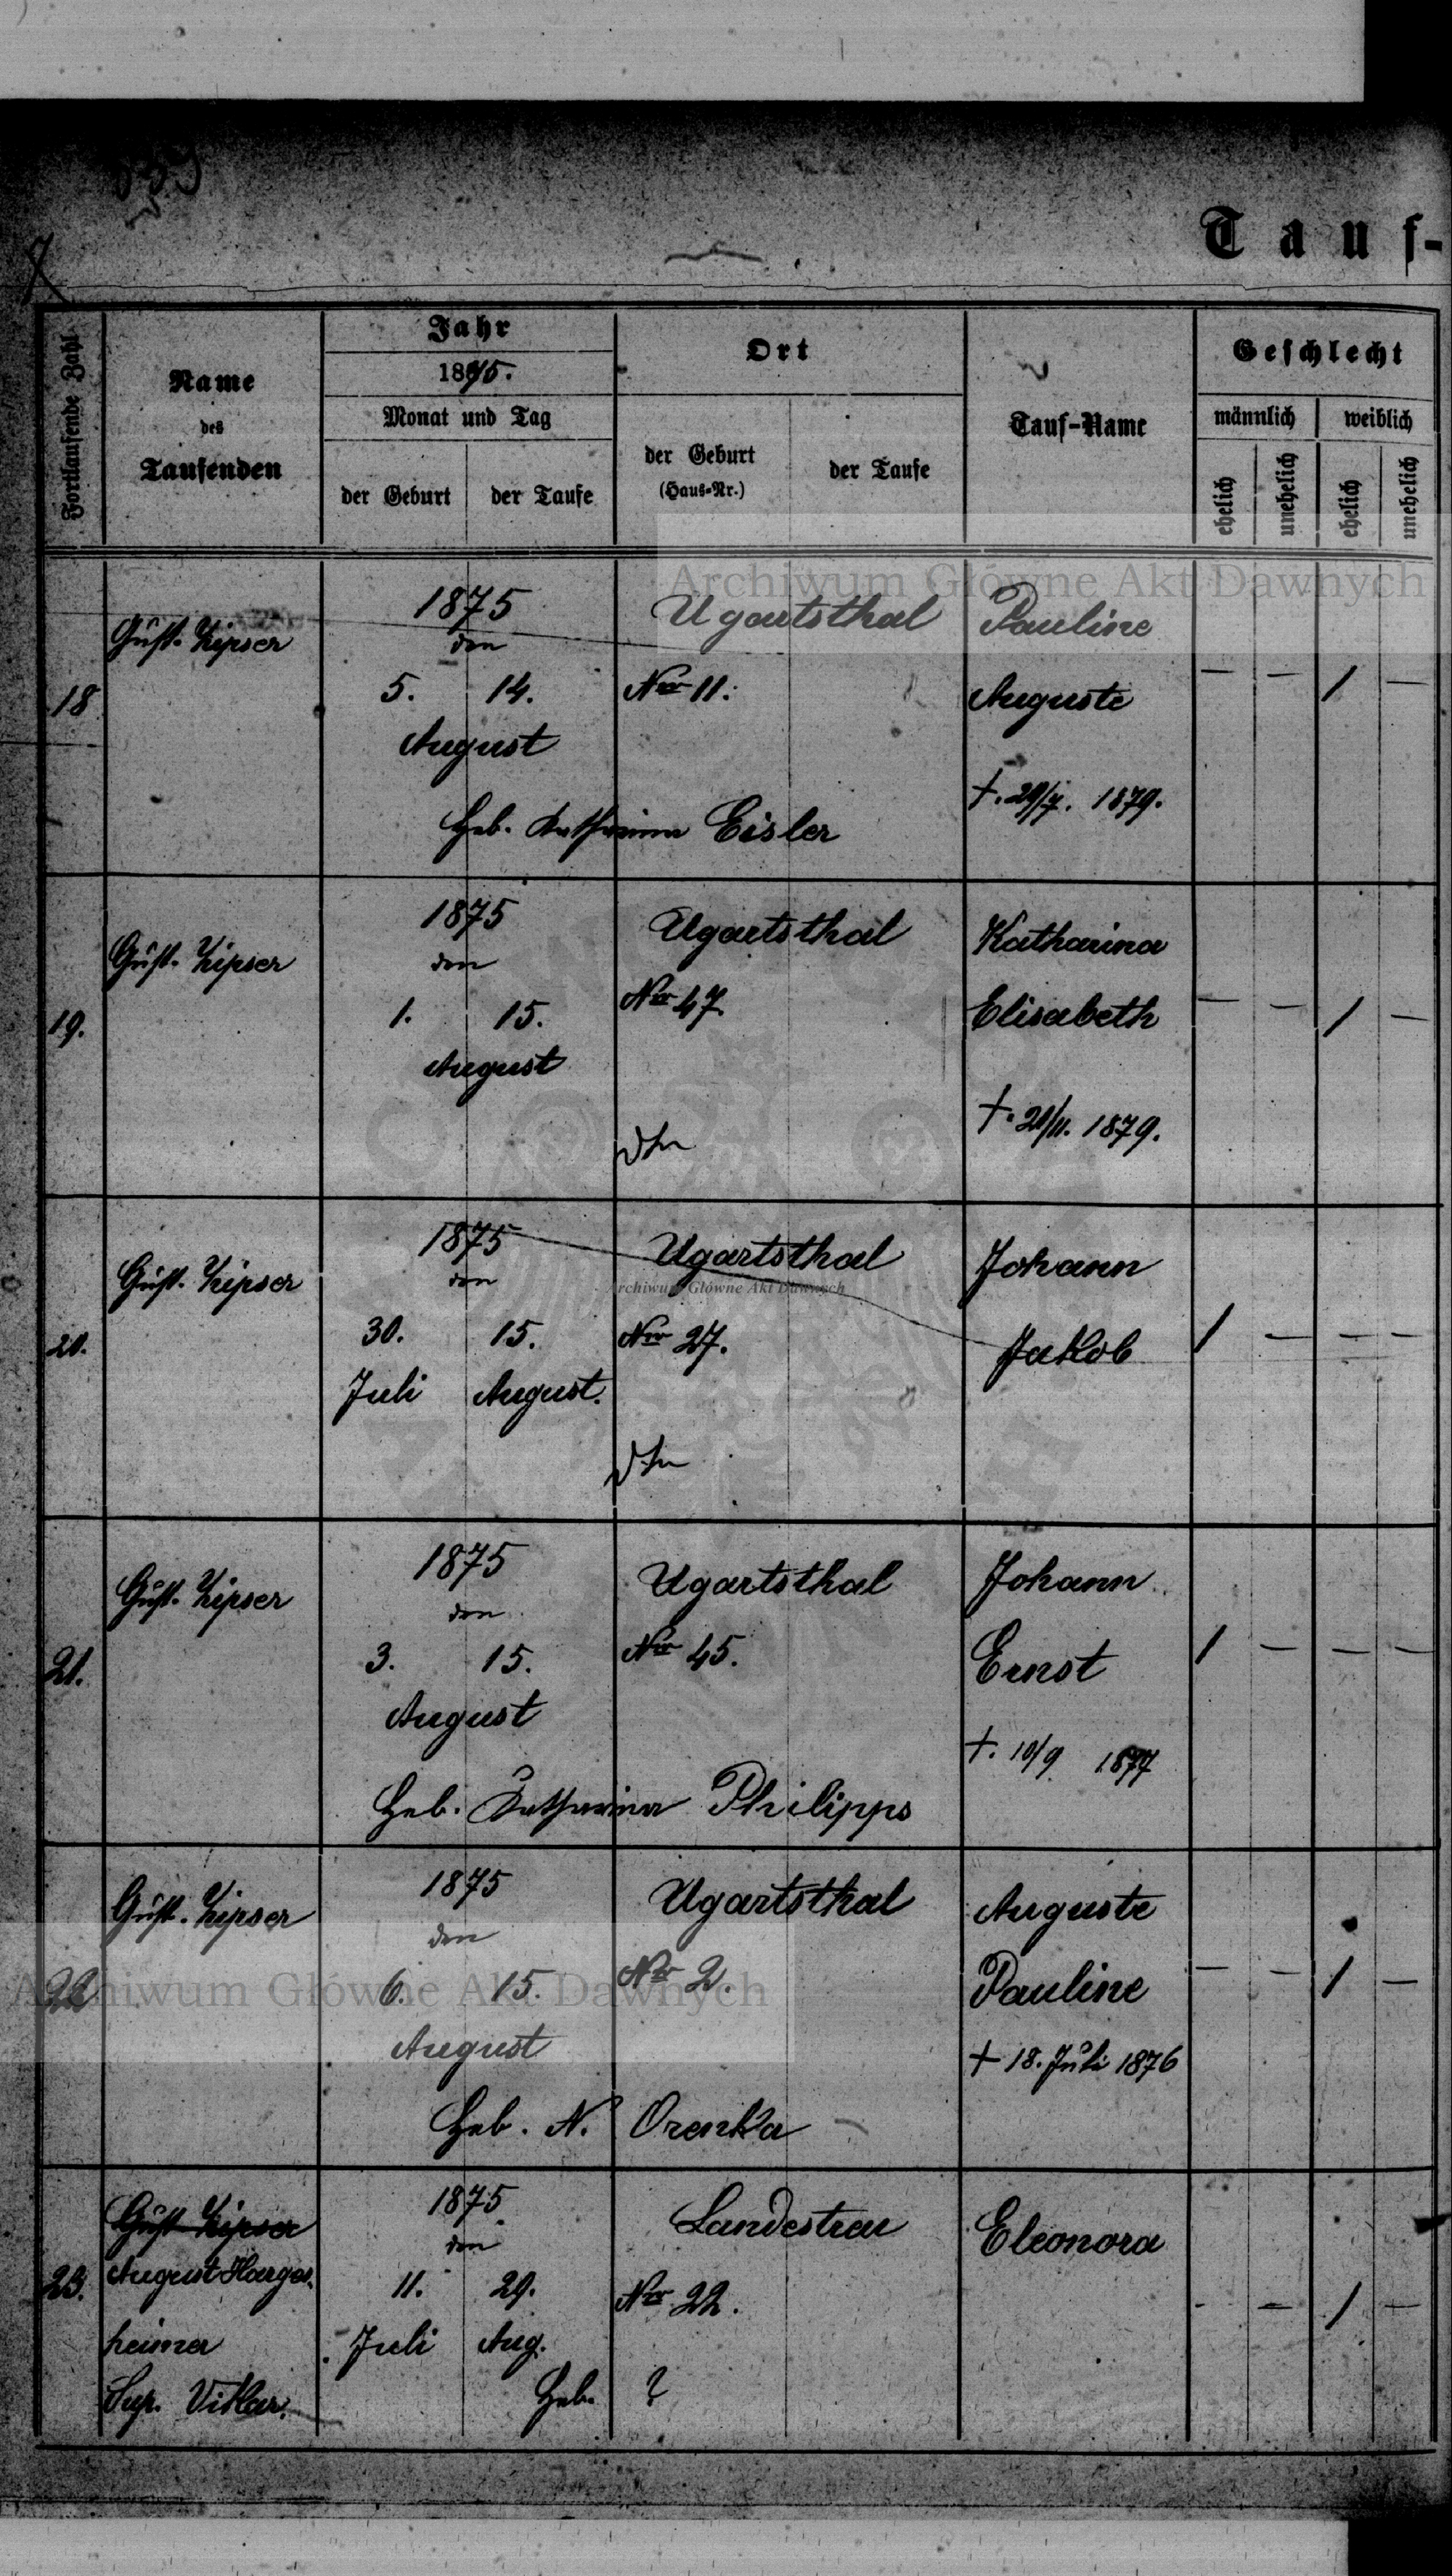 Tauf-
Fortlaufende Zahl
Name
des
Taufenden
Jahr
1875.
Monat und Tag
der Geburt
der Taufe
Ort
der Geburt
(Haus-Nr.)
der Taufe
Tauf-Name
Geschlecht
männlich
weiblich
ehelich
unehelich
ehelich
unehelich
Archiwum Główne Akt Dawnych
18
Gust. Zipser
1875
den
5. 14.
August
Ugartsthal
Nro 11.
Pauline
Auguste
— — 1 —
Heb. Katharina Eisler
19.
Gust. Zipser
1875
den
1. 15.
August
Ugartsthal
Nro 47.
Katharina
Elisabeth
— — 1 —
1879.
20.
Gust. Zipser
1875
den
30. 15.
Juli August.
Ugartsthal
Archiwum Główne Akt Dawnych
Nro 27.
Johann
Jakob
1 — — —
21.
Gust. Zipser
1875
den
3. 15.
August
Ugartsthal
Nro 45.
Johann
Ernst
†. 10/9 1877
1 — — —
Heb. Katharina Philipps
22
Gust. Zipser
1875
den
6. 15.
August
Ugartsthal
Nro 2.
Auguste
Pauline
† 18. Juli 1876
— — 1 —
Archiwum Główne Akt Dawnych
Heb. N. Orenka
23.
Gust Zipser
August Harges-
heimer
Sup. Vikar.
1875
den
11. 29.
Juli Aug.
Landestreu
Nro 22.
Eleonora
- — 1 —
Heb. ?